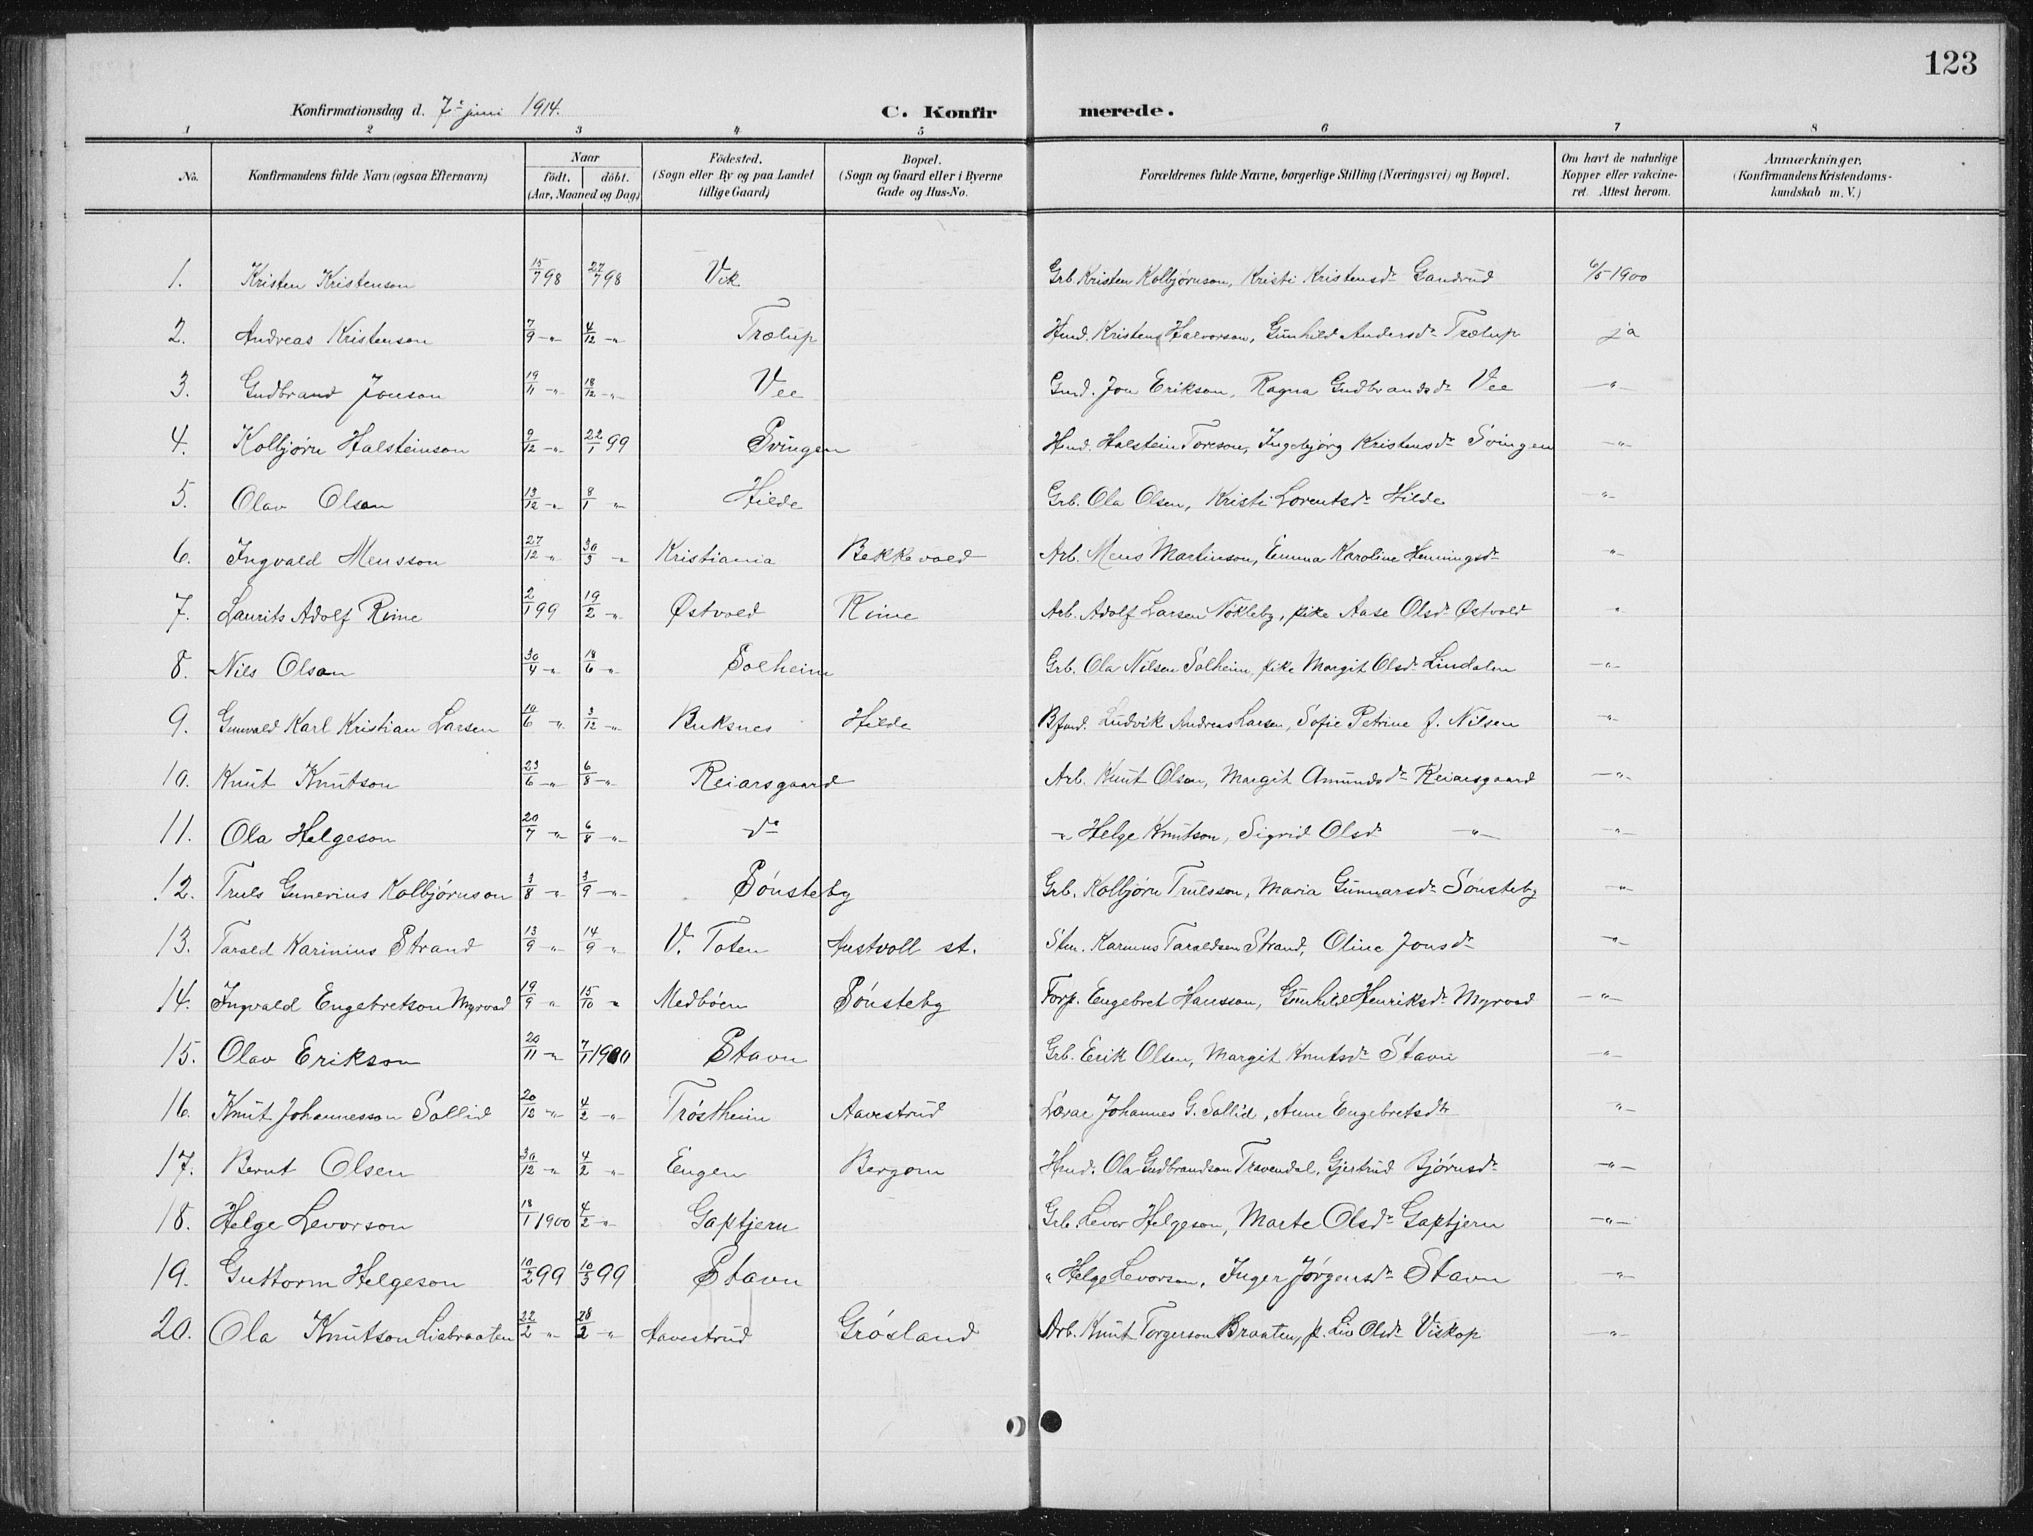 123
Konfirmationsdag d. 7de juni 1914.
C. Konfirmerede.
1 2 3 4 5 6 7 8
No. | Konfirmandens fulde Navn (ogsaa Efternavn) | Naar födt. döbt. (Aar, Maaned og Dag) | Födested. (Sogn eller By og paa Landet tillige Gaard) | Bopæl. (Sogn og Gaard eller i Byerne Gade og Hus-No. | Forældrenes fulde Navne, borgerlige Stilling (Næringsvei) og Bopæl. | Om havt de naturlige Kopper eller vakcineret. Attest herom. | Anmærkninger. (Konfirmandens Kristendomskundskab m. V.)
1. Kristen Kristenson 15/7 98 27/7 98 Vik Grb. Kristen Kolbjørnson, Kristi Kristensdr Gandrud 6/5 1900
2. Andreas Kristenson 7/9 -"- 4/12 -"- Trælup Hmd. Kristen Halvorson, Gunhild Andersdr Trælup ja
3. Gudbrand Jonson 19/11 -"- 18/12 -"- Vee Gmd. Jon Erikson, Ragna Gudbrandsdr Vee -"-
4. Kolbjørn Halsteinson 9/12 -"- 22/1 99 Svingen Hmd. Halstein Toreson, Ingebjørg Kristensdr Svingen -"-
5. Olav Olson 13/12 -"- 8/1 -"- Hilde Grb. Ola Olsen, Kristi Lorentsdr Hilde -"-
6. Ingvald Mensson 27/12 -"- 30/3 -"- Kristiania Bekkevold Arb. Mens Martinson, Emma Karoline Henningsdr -"-
7. Laurits Adolf Rime 2/1 99 19/2 -"- Østvold Rime Arb. Adolf Larsen Nökleby, pike Aase Olsdr Østvold "
8. Nils Olson 30/4 -"- 18/6 -"- Solheim Grb. Ola Nilsen Solheim, pike Margit Olsdr Lindalen -"-
9. Gunvald Karl Kristian Larsen 10/6 -"- 3/12 -"- Buksnes Hilde Bfmd. Ludvik Andreas Larsen, Sofie Petrine f. Nilsen -"-
10. Knut Knutson 23/6 -"- 6/8 -"- Reiarsgaard Arb. Knut Olson, Margit Amundsdr Reiarsgaard -"-
11. Ola Helgeson 20/7 -"- 6/8 -"- do -"- Helge Knutson, Sigrid Olsdr -"- -"-
12. Truls Gunerius Kolbjørnson 3/8 -"- 3/9 -"- Sönsteby Grb. Kolbjørn Trulsson, Maria Gunnarsdr Sönsteby -"-
13. Tarald Karinius Strand 13/9 -"- 14/9 -"- V. Toten Austvoll st. Stm. Karinus Taraldsen Strand, Oline Jonsdr -"-
14. Ingvald Engebretson Myrvod 19/9 -"- 15/10 -"- Medböen Sönsteby Forp. Engebret Hansson, Gunhild Henriksdr Myrvod -"-
15. Olav Erikson 20/11 -"- 7/1 1900 Stavn Grb. Erik Olsen, Margit Knutsdr Stavn -"-
16. Knut Johannesson Sollid 20/12 -"- 4/2 -"- Tröstheim Aavestrud Lærar Johannes G. Sollid, Anne Engebretsdtr -"-
17. Bernt Olsen 30/12 -"- 4/2 -"- Engen Bergom Hmd. Ola Gudbrandson Travendal, Gjertrud Bjørnsdr -"-
18. Helge Levorson 18/1 1900 4/2 -"- Gaptjern Grb. Levor Helgeson, Marte Olsdr Gaptjern -"-
19. Guttorm Helgeson 10/2 99 10/3 99 Stavn " Helge Levorson, Inger Jørgensdr Stavn -"-
20. Ola Knutson Liabraaten 22/2 -"- 28/2 -"- Aavestrud Grösland Arb. Knut Torgerson Braaten, p. Liv Olsdr Viskop -"-